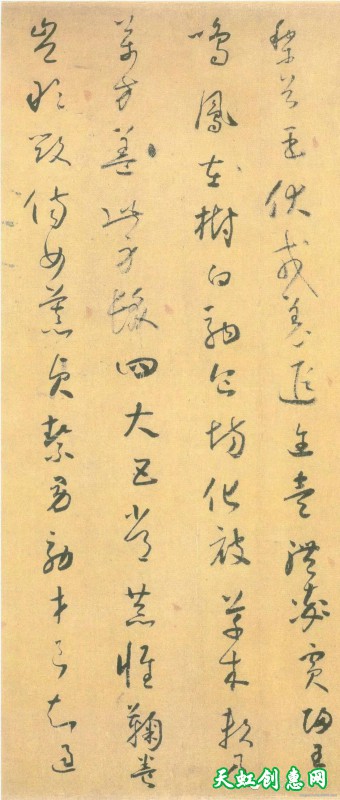 黎首臣伏戎羌遐迩壹體率賓歸王
鳴鳳在樹白駒食場化被草木賴及
萬方蓋此身髮四大五常恭惟鞠養
豈敢毀傷女慕貞絜男效才良知過
天虹创惠网